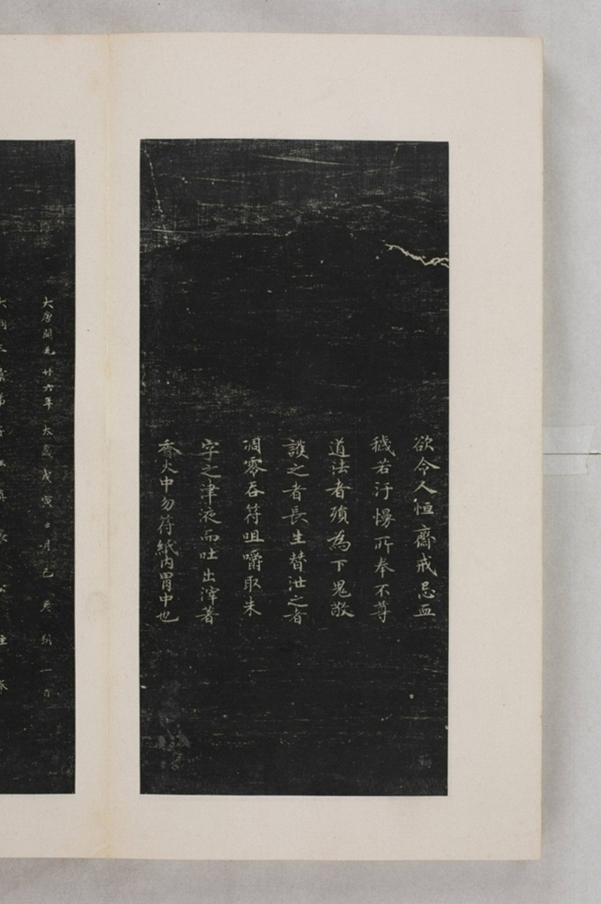 欲令人恒齋戒忌血
穢若汙慢所奉不尊
道法者殞為下鬼敬
護之者長生替泄之者
凋零吞符咀嚼取朱
字之津液而吐出滓著
香火中勿符紙內胃中也
大唐開元廿六年太歲戊寅月朔一日